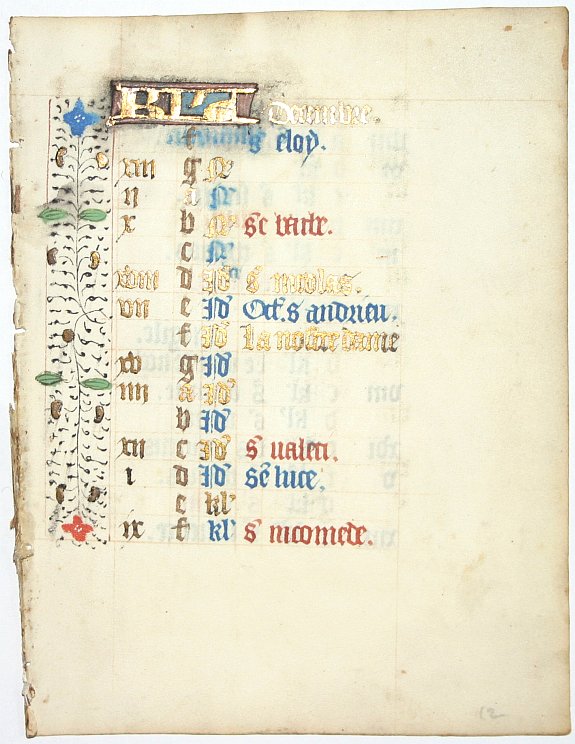 KL Decembre.
f s eloy.
xiii g N
ii a N
x b N se barbe.
c N
xviii d Id s nicolas.
vii e Id Oct. s andrieu.
f Id La nostre dame
xv g Id
iiii a Id
b Id
xii c Id s
i d Id se luce.
e kl
ix f kl s nicomede.
12